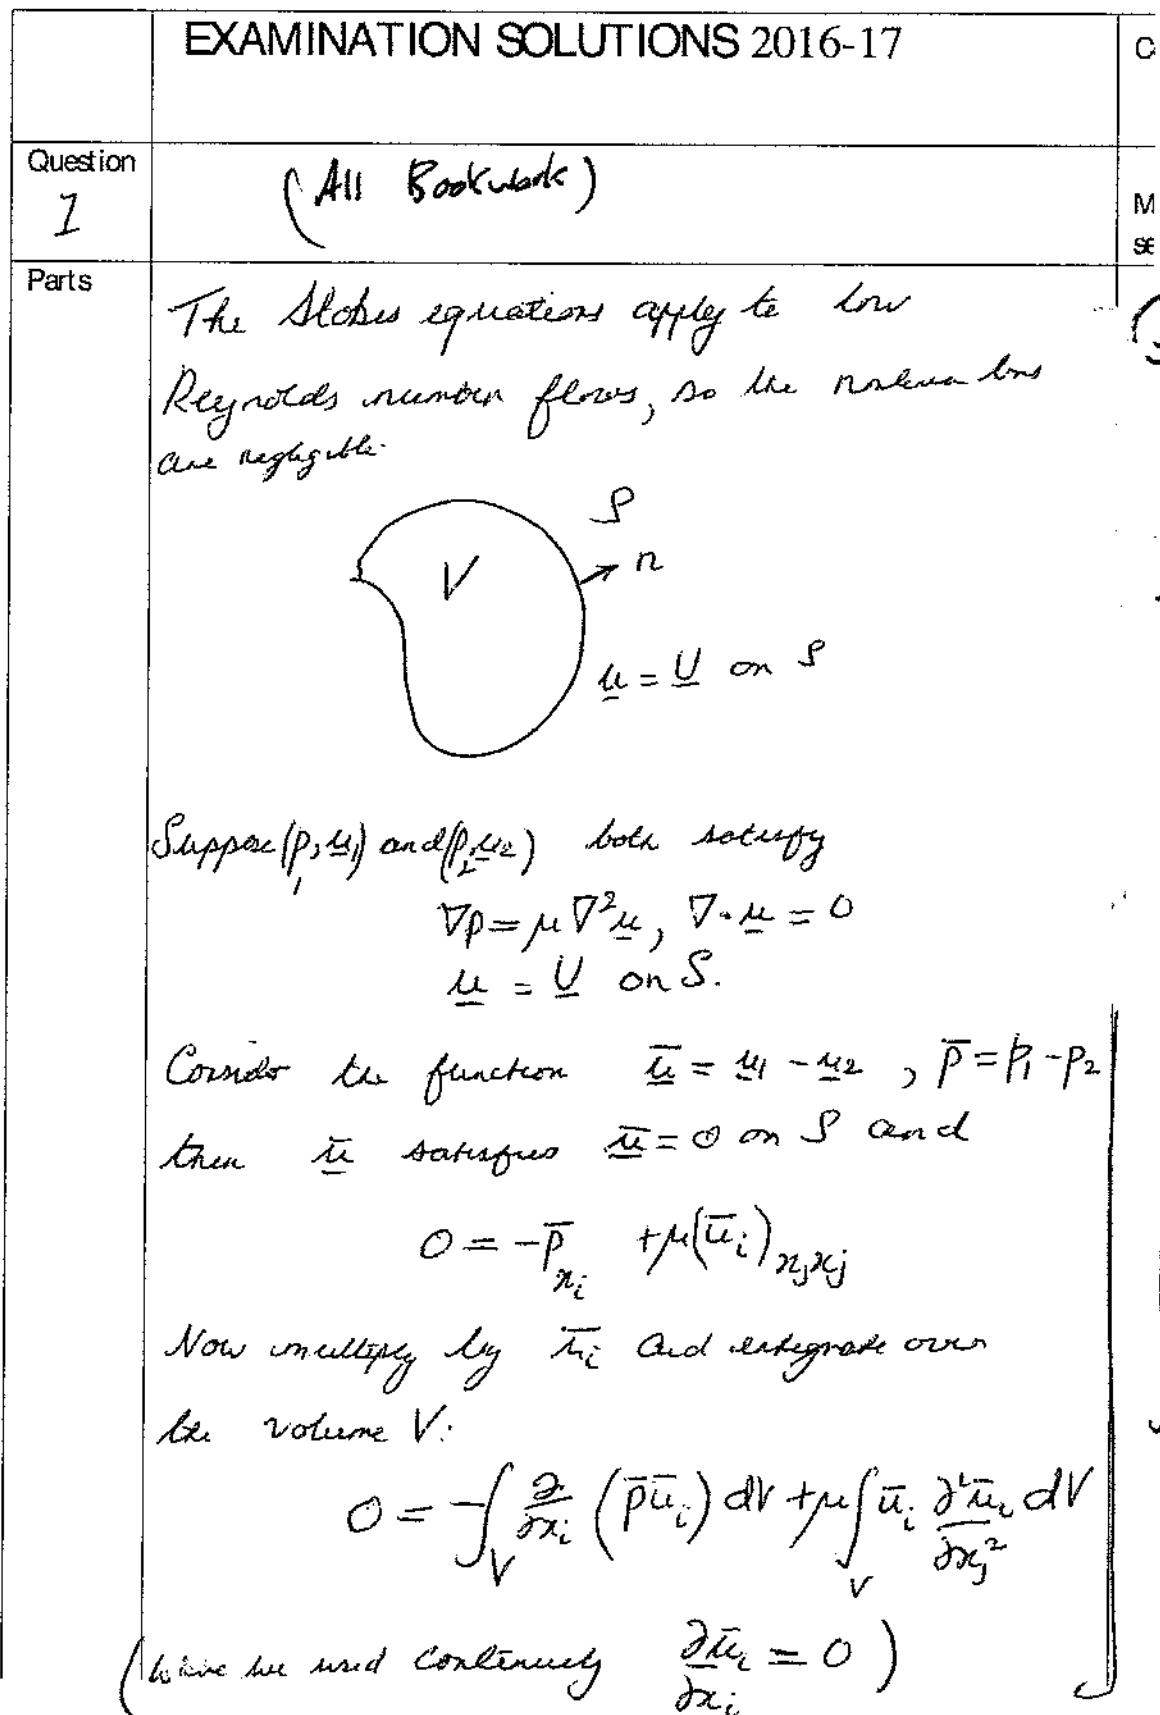 EXAMINATION SOLUTIONS 2016-17
Question
1
(All Bookwork)
Parts
The Stokes equations apply to low
Reynolds number flows, so the nonlinear terms
are negligible.
S
V
n
u = U on S
Suppose (p₁, u₁) and (p₂, u₂) both satisfy
∇p = μ∇²u, ∇·u = 0
u = U on S.
Consider the function ū = u₁ - u₂, p̄ = p₁ - p₂
then ū satisfies ū = 0 on S and
0 = -p̄_{x_i} + μ(ū_i)_{x_j x_j}
Now multiply by ū_i and integrate over
the volume V:
0 = -∫_V ∂/∂x_i (p̄ū_i) dV + μ∫_V ū_i ∂²ū_i/∂x_j² dV
(where we used continuity ∂ū_i/∂x_i = 0)